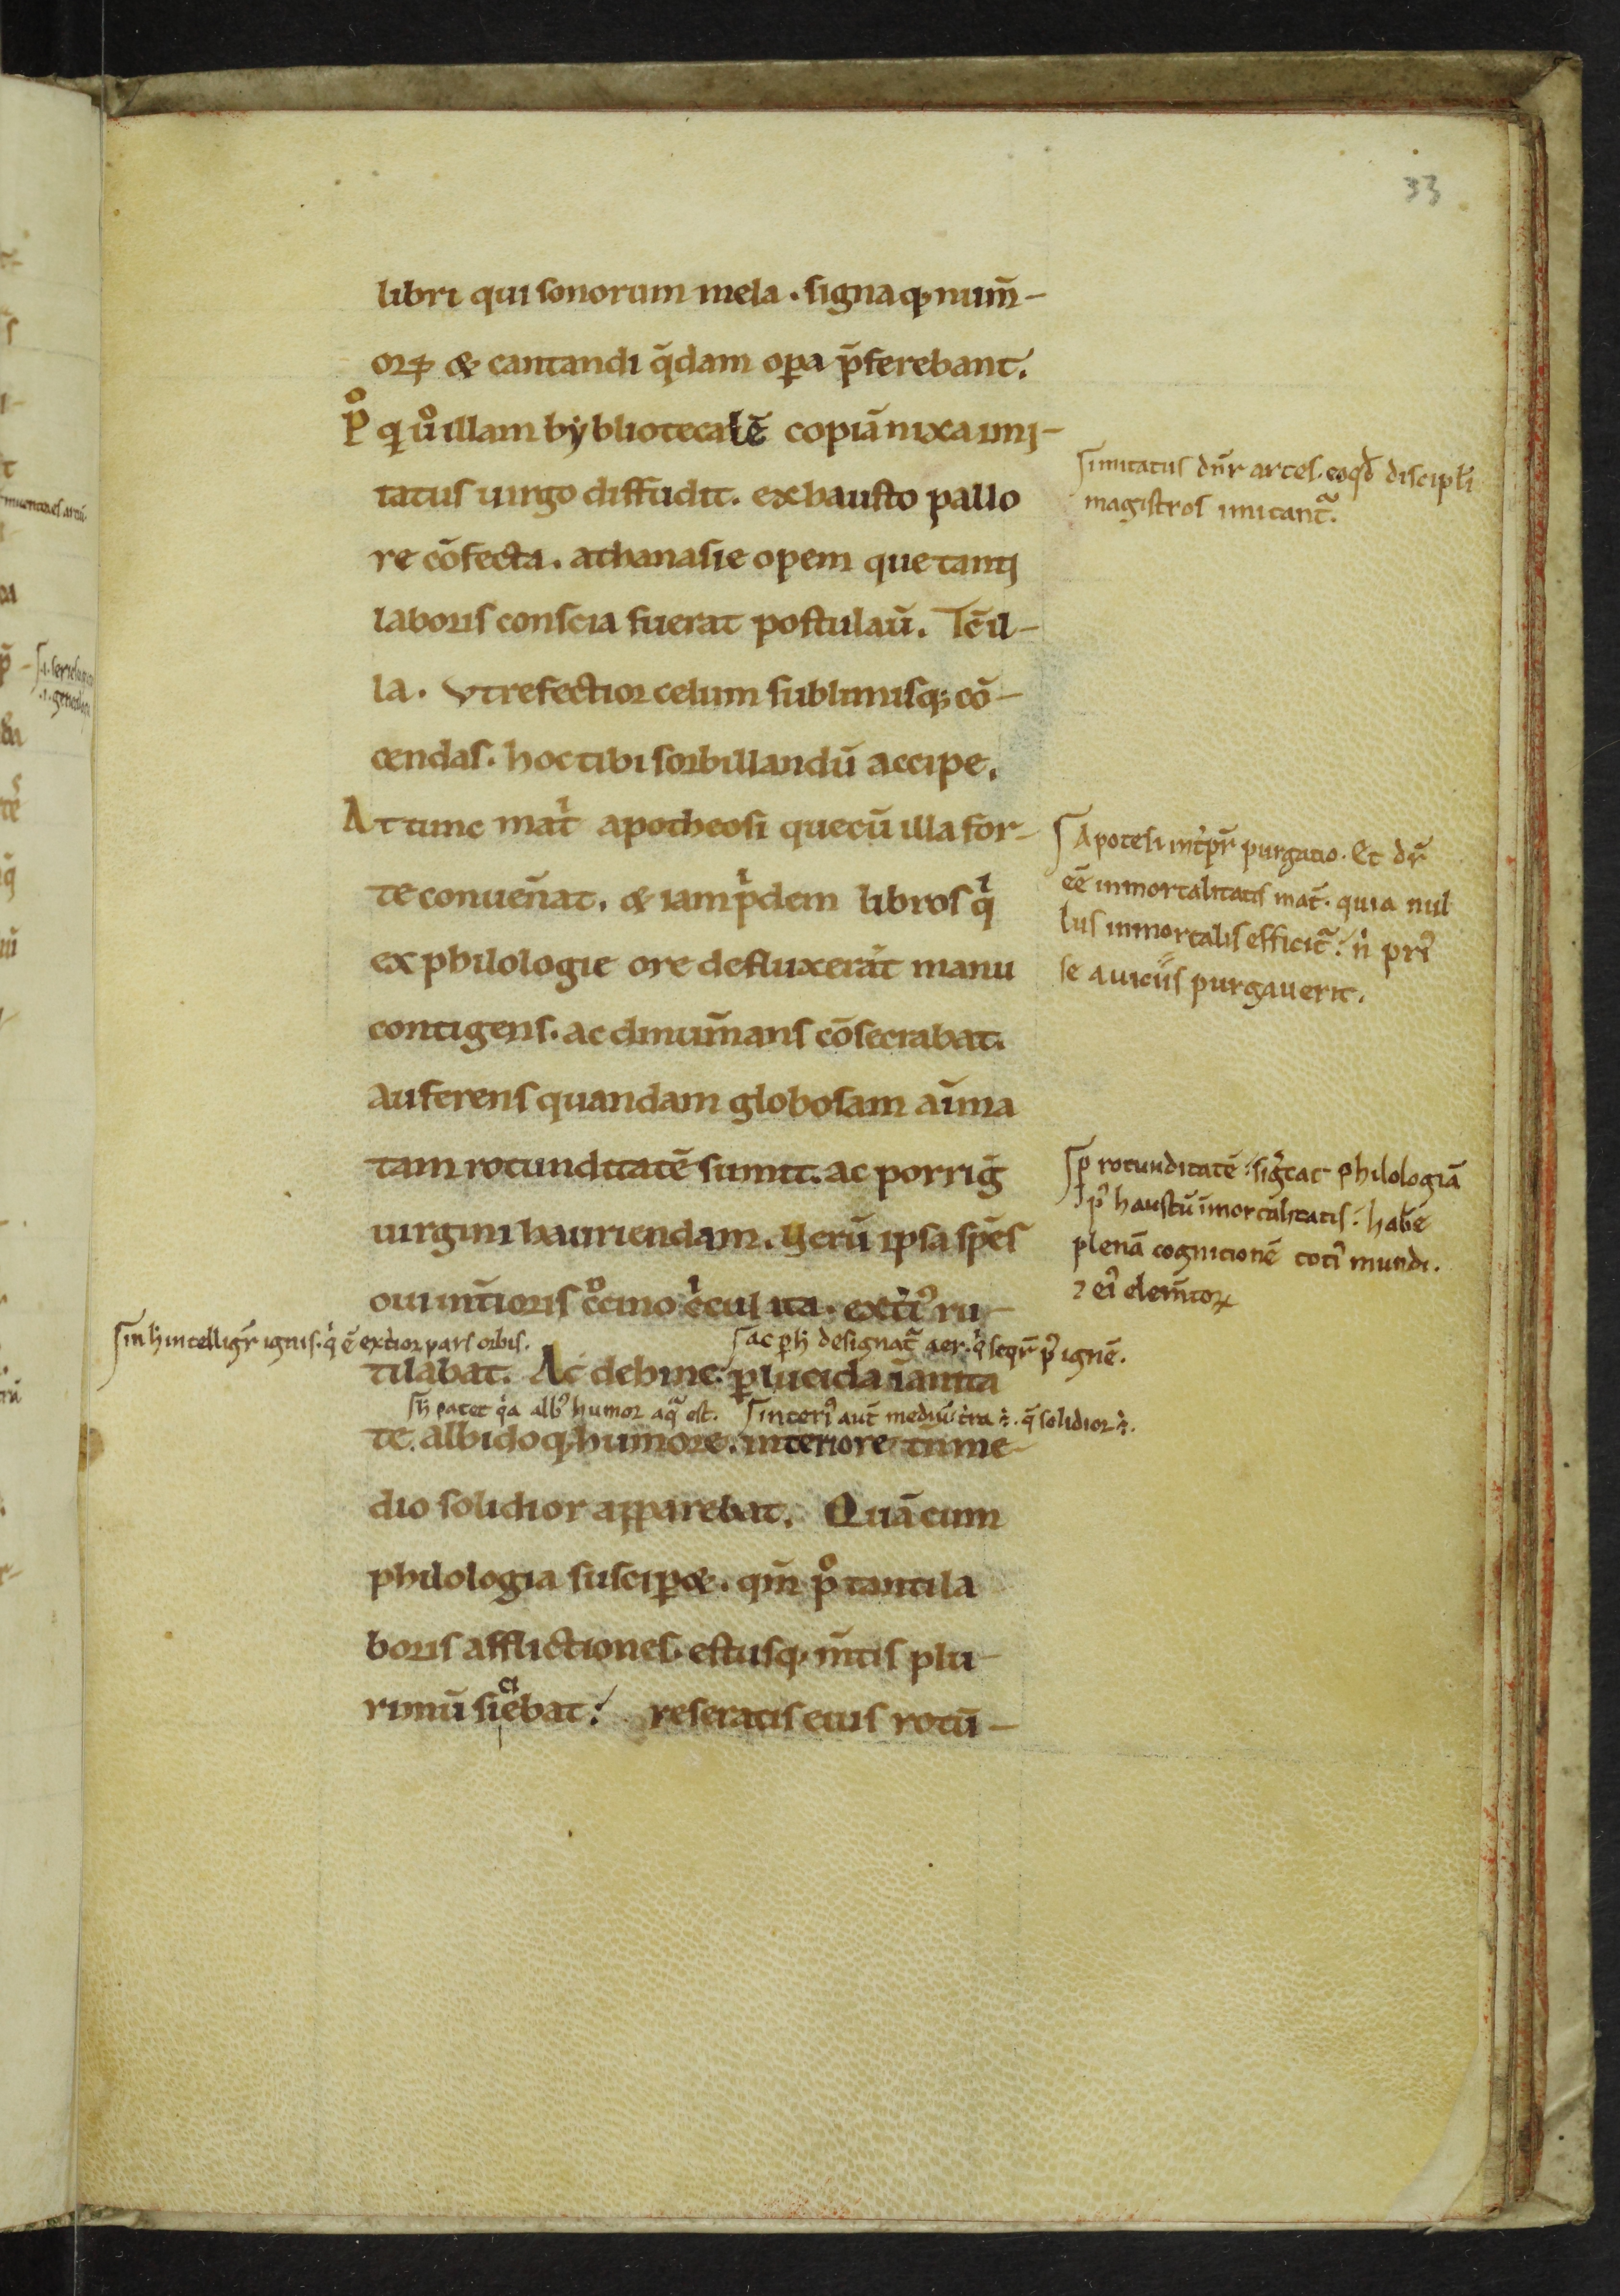 33
libri qui sonorum mela. signaq; num̄-
oꝝ & cantandi q̄dam oꝑa p̄ferebant.
Pº quº illam bẏbliotecalē copiā nixa imi-
tatus uirgo diffudit. exhausto pallo
re cōfecta. athanasie opem que tanti
laboris conscia fuerat postulau̅. Tc̄ il-
la. Vt refectior celum sublimisq; cō-
cendas. hoc tibi sorbillandū accipe.
At tunc matͥ apotheosi que cū illa for-
te conuen̄at. & iam pͥdem libros qͥ
ex philologie ore defluxerāt manu
contigens. ac dinum̄ans cōsecrabat.
auferens quandam globosam aīma
tam rotunditatē sumit. ac porriḡ
uirgini hauriendam. Verū ipsa spēs
oui int̄ioris cͦcino cͥculita. ext̄iꝰ ru-
tilabat. Ac dehinc ꝑlucida īanita
te. albidoq; humore. interiore tn̄ me-
dio solidior apparebat. Quā cum
philologia susciꝑ&. qm̄ pº tanti la
boris afflictiones. estusq; m̄tis plu-
rimū siciebat. reseratis eius rotū-
imitatus dn̄r artes. eo qd̄ discipl̄i
magistros imitant᷑.
Apotesi int̄pr̄ purgatio. Et dr̄
eē inmortalitatis mat̄. quia nul
lus inmortalis efficit᷑. nͥ priꝰ
se a uiciis purgauerit.
ꝑ rotunditatē sig̅tat philologiā
pꝰ haustū īmortalitatis. habē
plenā cognitionē totiꝰ mundi.
⁊ eiꝰ elem̄toꝝ
in h̄ intelligr̄ ignis. qͥ ē ext̄ior pars orbis.
ac ꝑ h̄ designat᷑ aer. qͥ seqr̄ pꝰ ignē.
h̄ patet qͥa albꝰ humor aqᷓ est.
interiꝰ aut̄ mediū t̄ra ÷. q̄ solidior ÷.